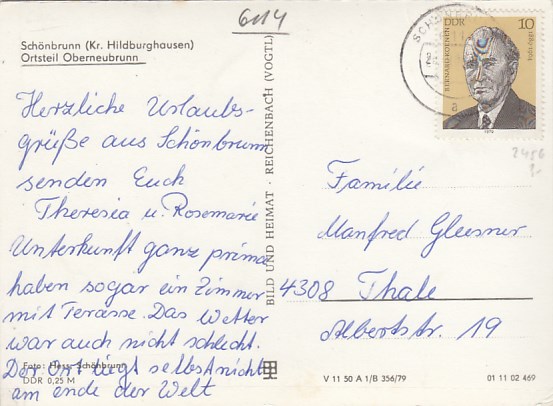 6114
Schönbrunn (Kr. Hildburghausen)
Ortsteil Oberneubrunn
Herzliche Urlaubs-
grüße aus Schönbrunn
senden Euch
Theresia u. Rosemarie
Unterkunft ganz prima
haben sogar ein Zimmer
mit Terasse. Das Wetter
war auch nicht schlecht.
Der Ort liegt selbst nicht
am ende der Welt
Foto: Hess, Schönbrunn
DDR 0,25 M
BILD UND HEIMAT · REICHENBACH (VOGTL)
DDR 10
BERNARD KOENEN
1889-1964
1979
2456
Familie
Manfred Gleesner
4308 Thale
Albertstr. 19
V 11 50 A 1/B 356/79
01 11 02 469